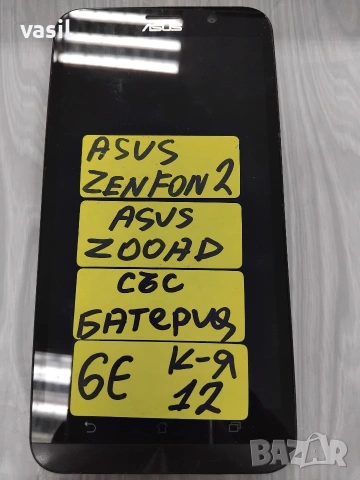 vasil
ASUS
ASUS
ZENFON2
ASUS
ZOOAD
СЪС
БАТЕРИЯ
6Е К-Я
12
BAZAR